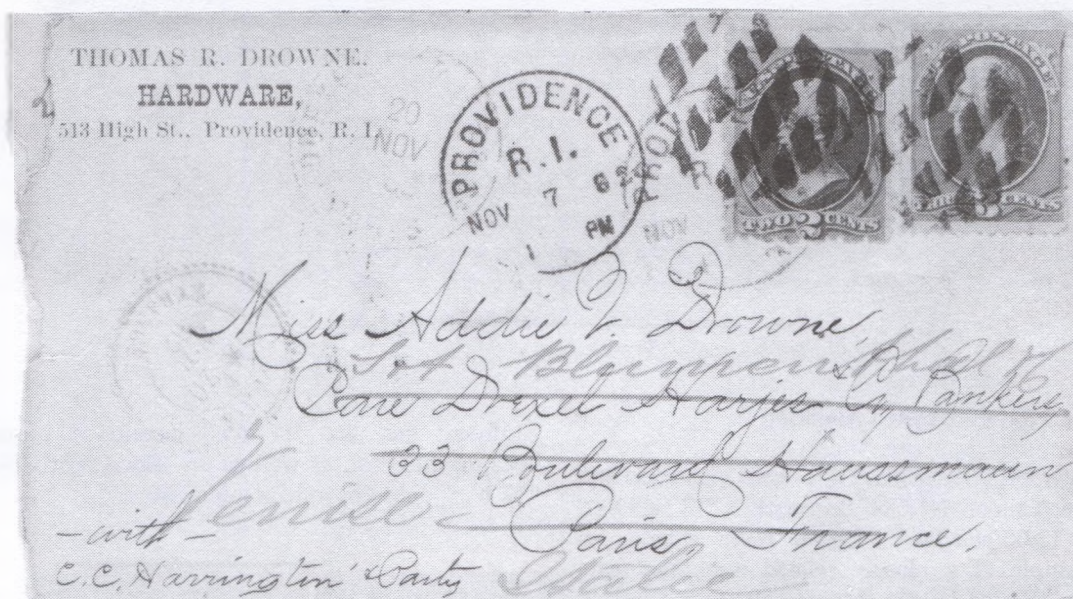 THOMAS R. DROWNE.
HARDWARE,
513 High St., Providence, R. I.
20
NOV
PROVIDENCE
R. I.
NOV 7 82
1 PM
PROV
R
NOV
U.S. POSTAGE
TWO 2 CENTS
U.S. POSTAGE
Miss Addie V. Drowne,
Care Drexel Harjes & Co, Bankers,
33 Boulevard Haussmann
Venise
Paris, France.
- with -
C. C. Harrington & Party
Italie